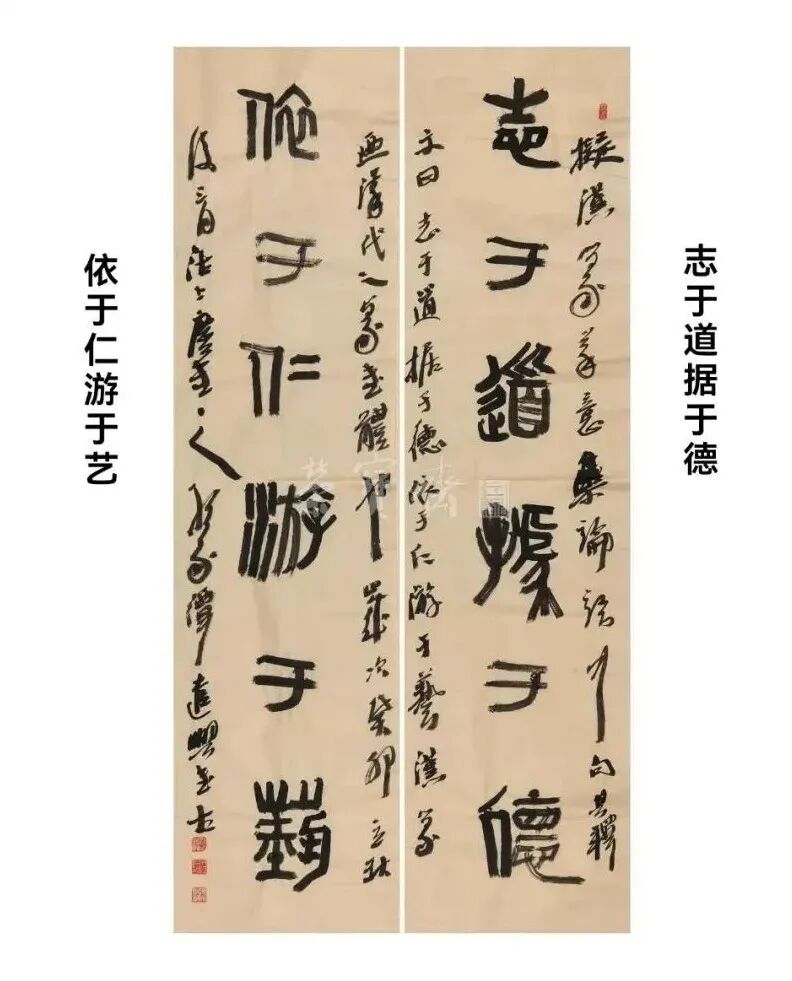 志于道据于德
擬漢篆筆意集論語中句其釋
志于道據于德
文曰志于道據于德依于仁游于藝漢篆
漢代之篆書體中歲次癸卯立秋
依于仁游于藝
後三日
依于仁游于艺
榮寶齋